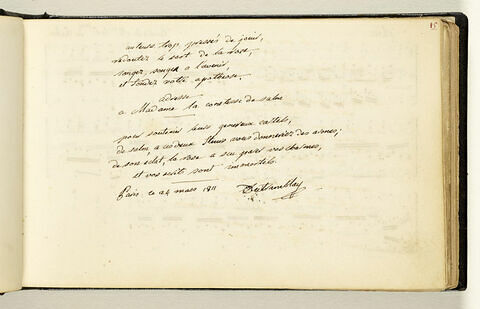 15
auteurs trop pressés de jouir,
redoutez le sort de la rose,
songez, songez à l'avenir,
et fondez votre apothéose.
adresse
a Madame la comtesse de salm
pour soutenir leurs généreux cartels,
de salm a ces deux fleurs vous donnerez des armes;
de son éclat, la rose a seu parer vos charmes,
et vos écrits sont immortels.
Paris ce 24 mars 1811 DuTremblay